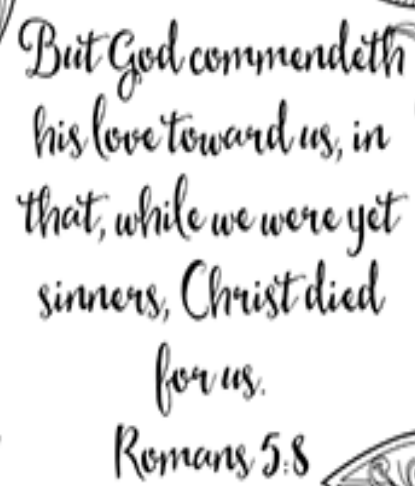 But God commendeth
his love toward us, in
that, while we were yet
sinners, Christ died
for us.
Romans 5:8